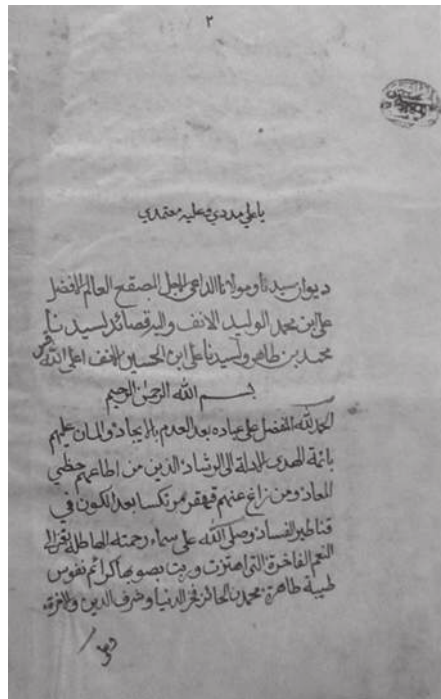 ٢
ياعلي مددي وعليه معتمدي
ديوان سيدنا ومولانا الداعي الاجل المصقع العالم الافضل
علي ابن محمد الوليد الانف واليه قصائد لسيدنا
محمد بن طاهر ولسيدنا علي ابن الحسين الانف اعلى الله قدسهم
بسم الله الرحمن الرحيم
الحمد لله المفضل على عباده بعد العدم بالايجاد والمان عليهم
بائمة الهدى الهداة الى الرشاد الذين من اطاعهم حظي
المعاد ومن زاغ عنهم قهقر مرتكسا بعد الكون في
قناطير الفساد وصلى الله على سماء رحمته الهاطلة بقراح
النعم الفاخرة التي اهتزت وربت بصوبها كرائم نفوس
طيبة طاهرة محمد بن الحائز فخر الدنيا وشرف الدين والاخرة
وعلى